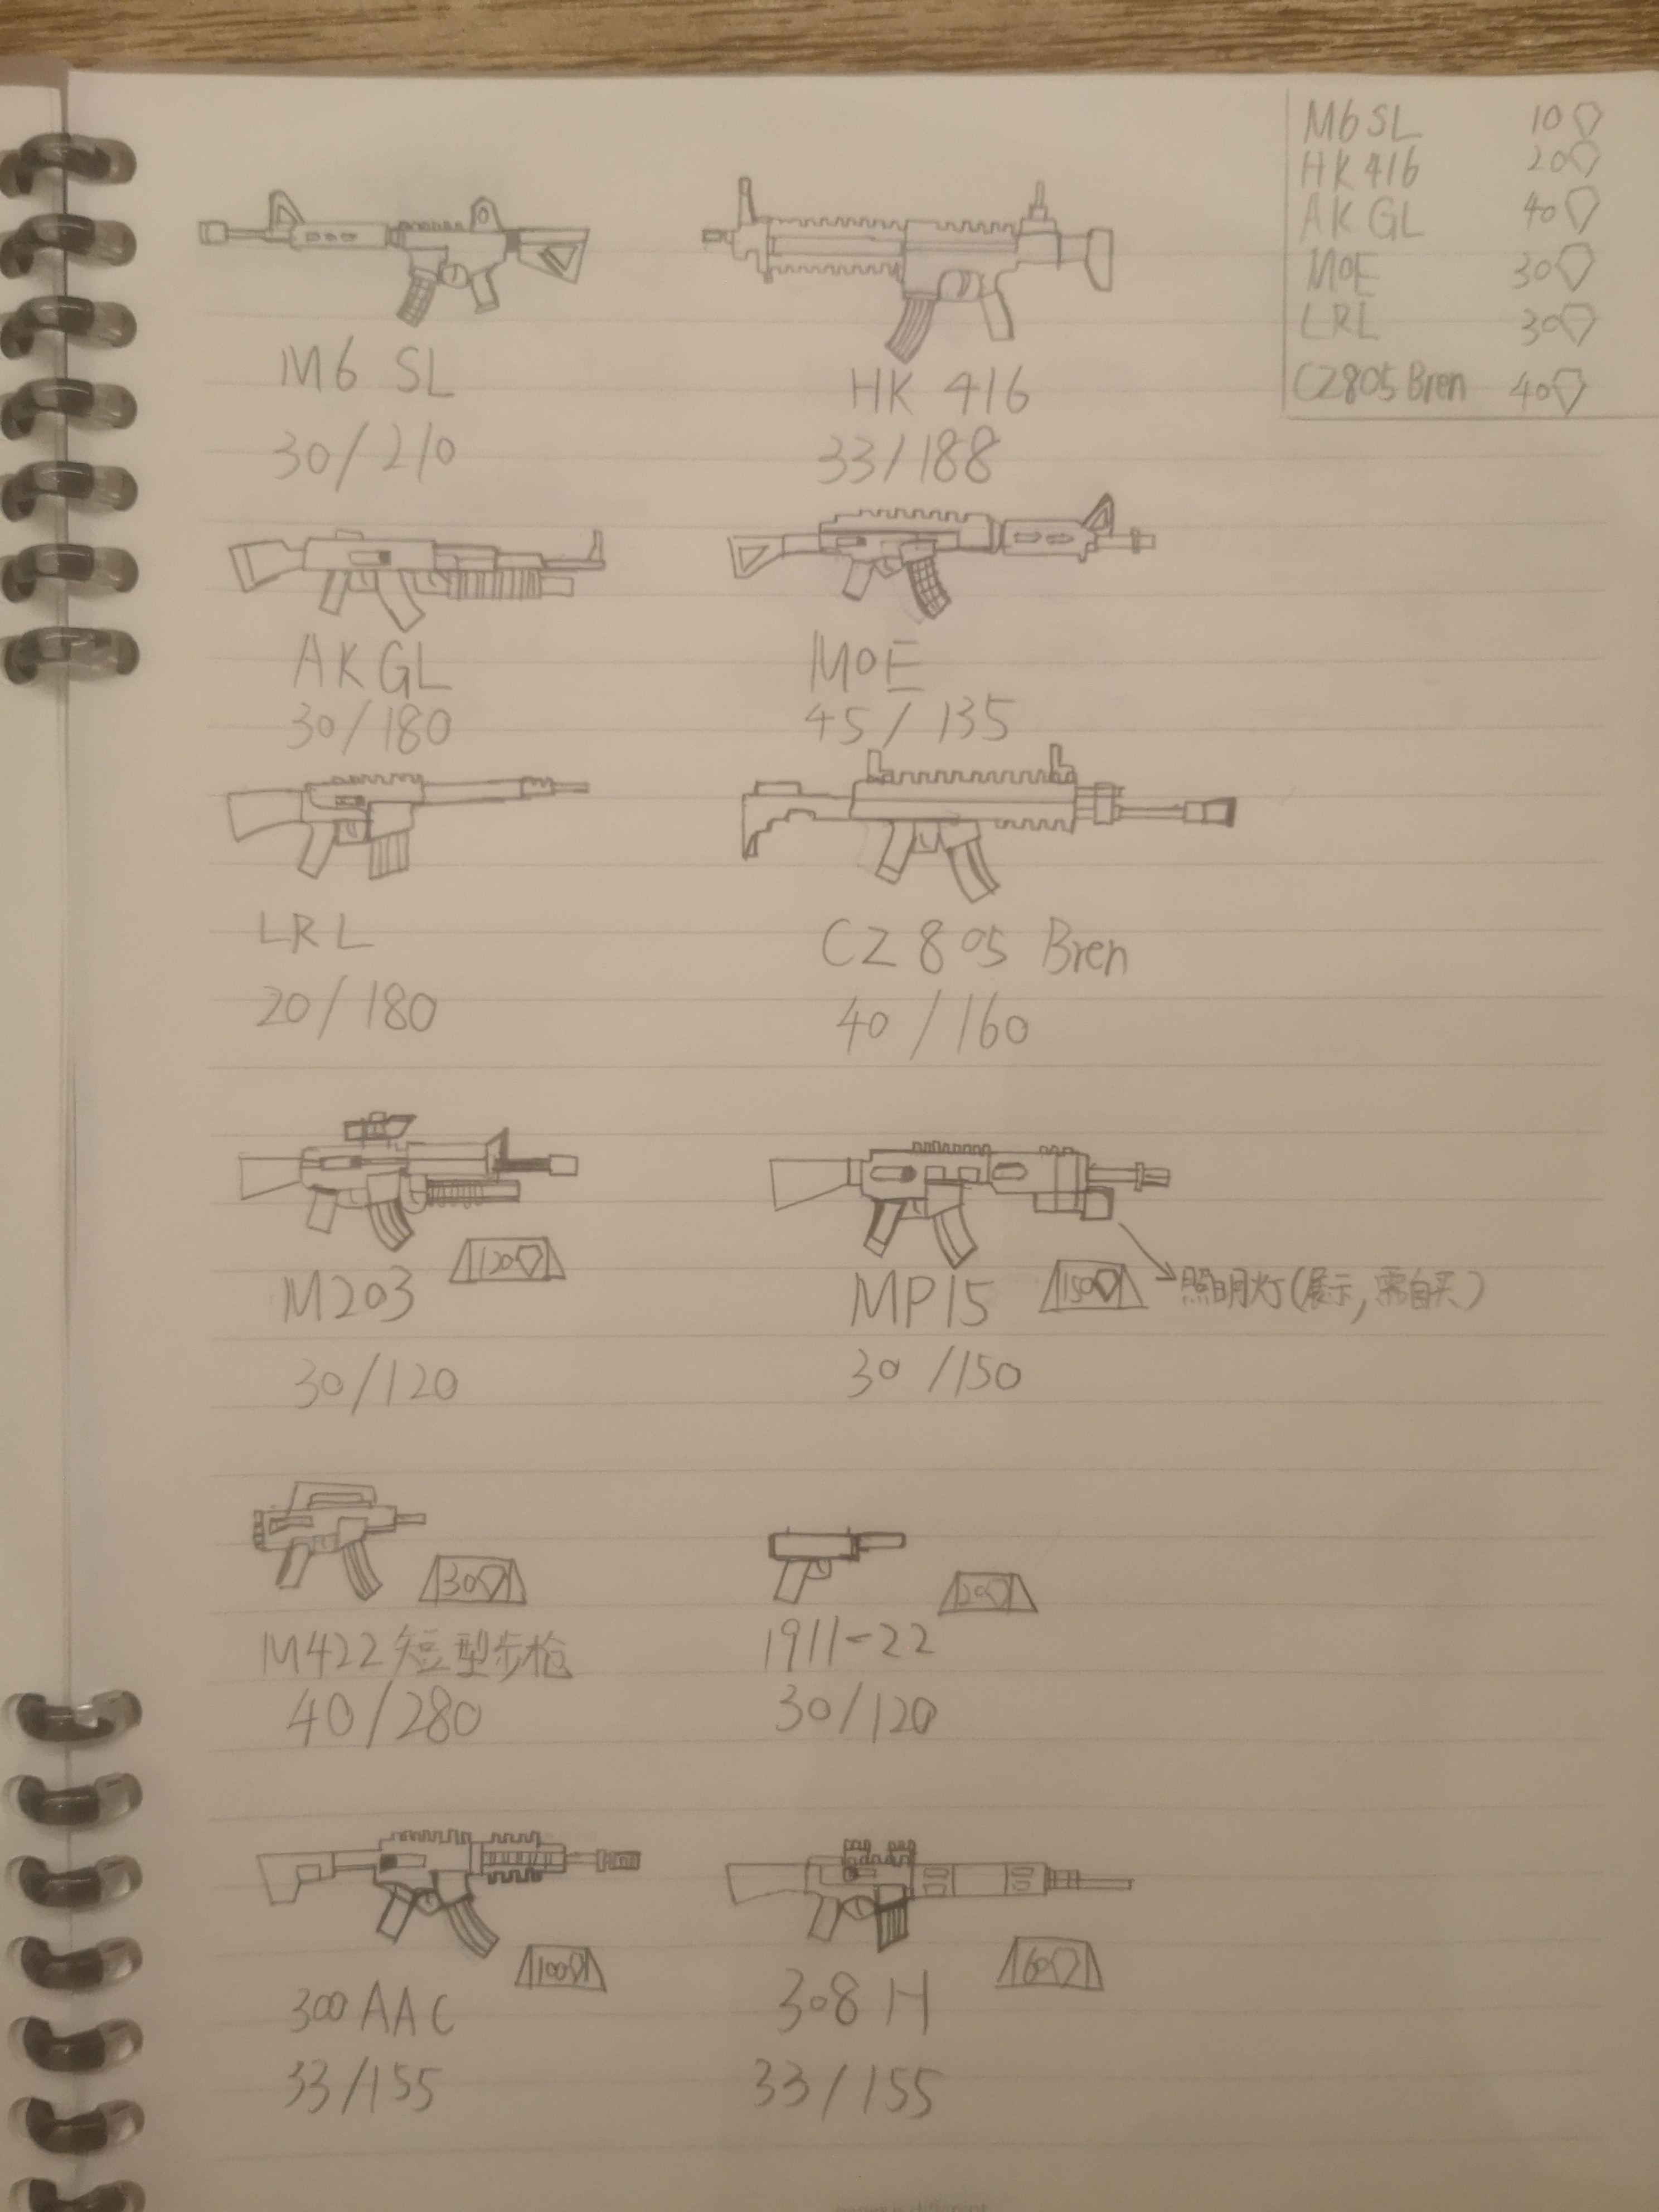 M6 SL 10
HK 416 20
AK GL 40
MOE 30
LRL 30
CZ805 Bren 40
M6 SL
30/210
HK 416
33/188
AK GL
30/180
MOE
45/135
LRL
20/180
CZ 805 Bren
40/160
120
M203
30/120
150
照明灯(展示,需自买)
MP15
30/150
30
M422短型步枪
40/280
20
1911-22
30/120
100
300 AAC
33/155
60
308 H
33/155